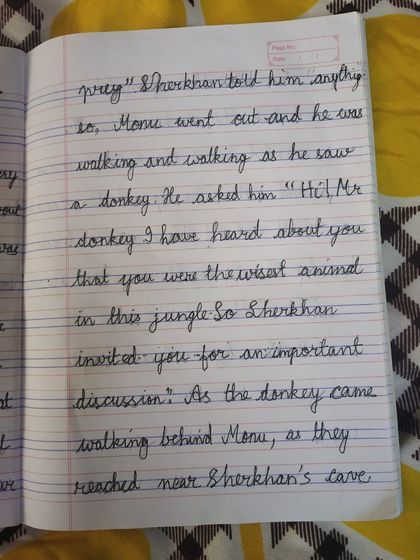 Page No:
Date: / /
prey" Sherkhan told him "anythig.
so, Monu went out and he was
walking and walking as he saw
a donkey. He asked him "Hi! Mr
donkey I have heard about you
that you were the wisest animal
in this jungle. So Sherkhan
invited you for an important
discussion". As the donkey came
walking behind Monu, as they
reached near Sherkhan's cave